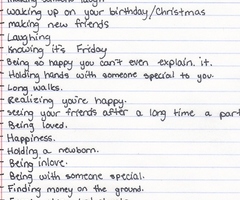 making someone laugh
waking up on your birthday/Christmas
making new friends
Laughing
Knowing it's Friday
Being so happy you can't even explain it.
Holding hands with someone special to you.
Long walks.
Realizing you're happy.
seeing your friends after a long time a part
Being loved.
Happiness.
Holding a newborn.
Being inlove.
Being with someone special.
Finding money on the ground.